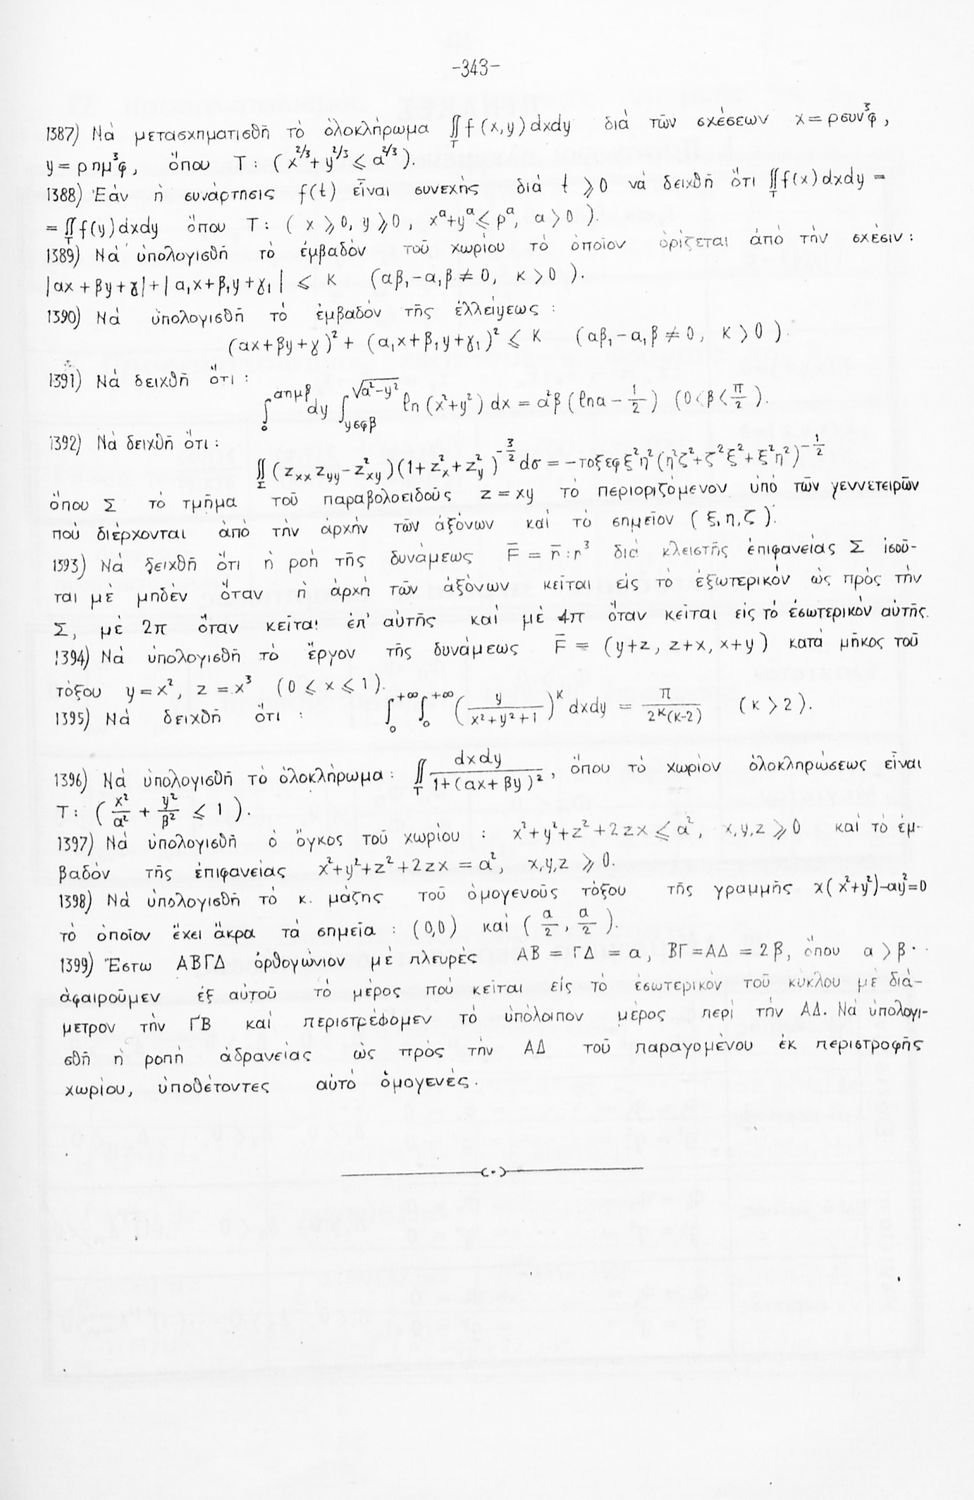 -343-
1387) Νά μετασχηματισθῆ τό ὁλοκλήρωμα ∬_T f(x,y)dxdy διά τῶν σχέσεων x=ρσυν³φ,
y=ρημ³φ, ὅπου T: (x^{2/3}+y^{2/3} ≤ α^{2/3}).
1388) Ἐάν ἡ συνάρτησις f(t) εἶναι συνεχής διά t ≥ 0 νά δειχθῆ ὅτι ∬_T f(x)dxdy =
= ∬_T f(y)dxdy ὅπου T: ( x ≥ 0, y ≥ 0, x^α+y^α ≤ ρ^α, α > 0 ).
1389) Νά ὑπολογισθῆ τό ἐμβαδόν τοῦ χωρίου τό ὁποῖον ὁρίζεται ἀπό τήν σχέσιν:
|αx+βy+γ|+|α₁x+β₁y+γ₁| ≤ κ (αβ₁-α₁β ≠ 0, κ > 0 ).
1390) Νά ὑπολογισθῆ τό ἐμβαδόν τῆς ἐλλείψεως :
(αx+βy+γ)² + (α₁x+β₁y+γ₁)² ≤ κ (αβ₁-α₁β ≠ 0, κ > 0 ).
1391) Νά δειχθῆ ὅτι :
∫_0^{αημβ} dy ∫_{yσφβ}^{√(α²-y²)} ℓn (x²+y²) dx = α²β (ℓnα - 1/2) (0<β<π/2).
1392) Νά δειχθῆ ὅτι :
∬_Σ (z_{xx} z_{yy} - z²_{xy})(1+z²_x+z²_y)^{-3/2} dσ = -τοξεφ ξ²η²(η²ζ²+ζ²ξ²+ξ²η²)^{-1/2}
ὅπου Σ τό τμῆμα τοῦ παραβολοειδοῦς z = xy τό περιοριζόμενον ὑπό τῶν γεννετειρῶν
πού διέρχονται ἀπό τήν ἀρχήν τῶν ἀξόνων καί τό σημεῖον (ξ,η,ζ).
1393) Νά δειχθῆ ὅτι ἡ ροή τῆς δυνάμεως F̄ = r̄ : r³ διά κλειστῆς ἐπιφανείας Σ ἰσοῦ-
ται μέ μηδέν ὅταν ἡ ἀρχή τῶν ἀξόνων κεῖται εἰς τό ἐξωτερικόν ὡς πρός τήν
Σ, μέ 2π ὅταν κεῖται ἐπ' αὐτῆς καί μέ 4π ὅταν κεῖται εἰς τό ἐσωτερικόν αὐτῆς.
1394) Νά ὑπολογισθῆ τό ἔργον τῆς δυνάμεως F̄ = (y+z, z+x, x+y) κατά μῆκος τοῦ
τόξου y=x², z=x³ (0 ≤ x ≤ 1).
1395) Νά δειχθῆ ὅτι : ∫_0^{+∞} ∫_0^{+∞} (y/(x²+y²+1))^κ dxdy = π/(2^κ(κ-2)) (κ > 2).
1396) Νά ὑπολογισθῆ τό ὁλοκλήρωμα : ∬_T dxdy/(1+(αx+βy)²), ὅπου τό χωρίον ὁλοκληρώσεως εἶναι
T: (x²/α² + y²/β² ≤ 1).
1397) Νά ὑπολογισθῆ ὁ ὄγκος τοῦ χωρίου : x²+y²+z²+2zx ≤ α², x,y,z ≥ 0 καί τό ἐμ-
βαδόν τῆς ἐπιφανείας x²+y²+z²+2zx = α², x,y,z ≥ 0.
1398) Νά ὑπολογισθῆ τό κ. μάζης τοῦ ὁμογενοῦς τόξου τῆς γραμμῆς x(x²+y²)-αy²=0
τό ὁποῖον ἔχει ἄκρα τά σημεῖα : (0,0) καί (α/2, α/2).
1399) Ἔστω ΑΒΓΔ ὀρθογώνιον μέ πλευρές ΑΒ = ΓΔ = α, ΒΓ=ΑΔ = 2β, ὅπου α > β·
ἀφαιροῦμεν ἐξ αὐτοῦ τό μέρος πού κεῖται εἰς τό ἐσωτερικόν τοῦ κύκλου μέ διά-
μετρον τήν ΓΒ καί περιστρέφομεν τό ὑπόλοιπον μέρος περί τήν ΑΔ. Νά ὑπολογι-
σθῆ ἡ ροπή ἀδρανείας ὡς πρός τήν ΑΔ τοῦ παραγομένου ἐκ περιστροφῆς
χωρίου, ὑποθέτοντες αὐτό ὁμογενές.